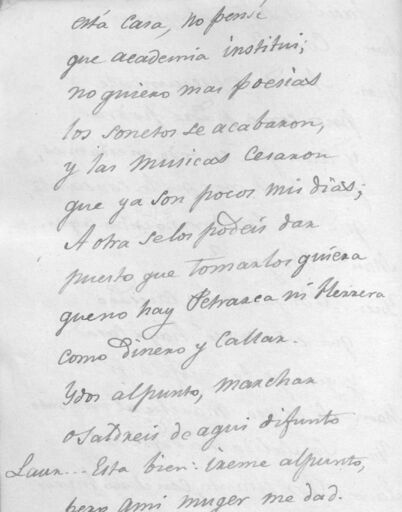 esta casa, no pensé
que academia institui;
no quiero mas poesias
los sonetos se acabaron,
y las musicas cesaron
que ya son pocos mis dias;
A otra selos podeis dar
puesto que tomarlos quiera
queno hay Petrarca ni Herrera
como Dinero y Callar.
Ydos alpunto, marchar
o saldreis de aqui difunto
Laur... Esta bien: ireme alpunto,
pero ami muger me dad.